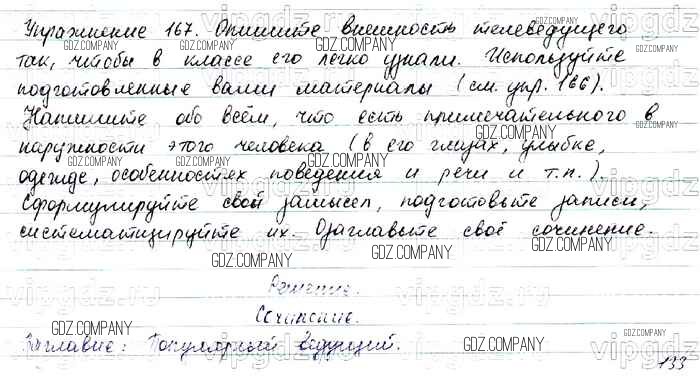 Упражнение 167. Опишите внешность телеведущего
так, чтобы в классе его легко узнали. Используйте
подготовленные вами материалы (см. упр. 166).
Напишите обо всём, что есть примечательного в
наружности этого человека (в его глазах, улыбке,
одежде, особенностях поведения и речи и т.п.).
Сформулируйте свой замысел, подготовьте записи,
систематизируйте их. Озаглавьте своё сочинение.
Решение.
Сочинение.
Заглавие: Популярный ведущий.
133
GDZ.COMPANY
vipgdz.ru